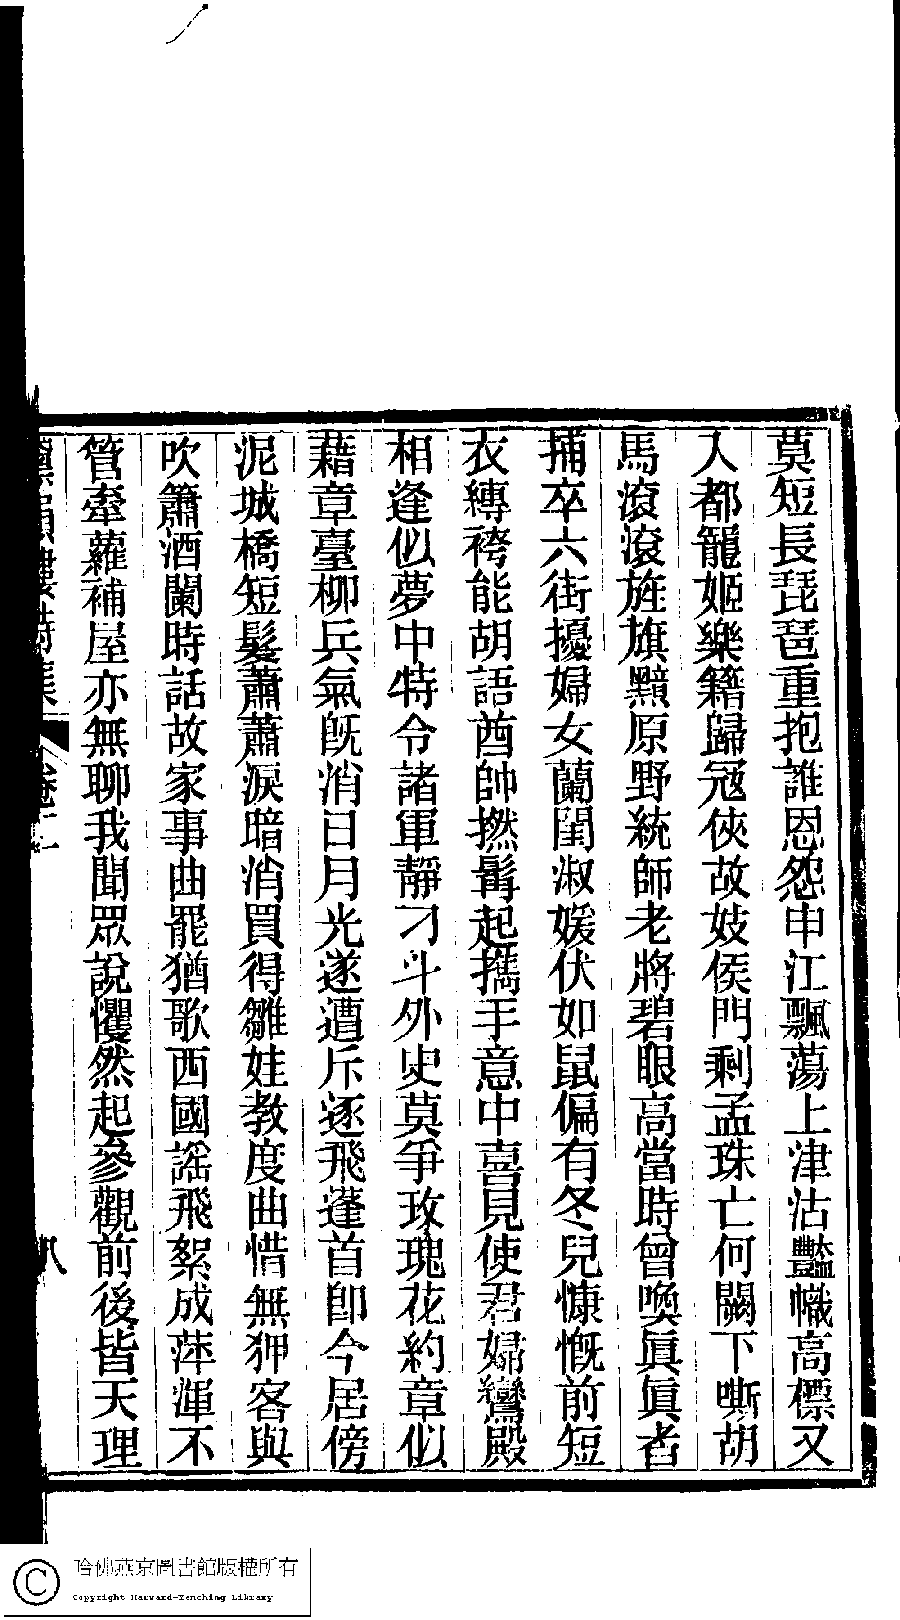 莫短長琵琶重抱誰恩怨申江飄蕩上津沽豔幟高標又
入都寵姬樂籍歸冠俠故妓侯門剩孟珠亡何闕下嘶胡
馬滾滾旌旗黯原野統師老將碧眼高當時曾喚眞眞者
捕卒六街擾婦女蘭閨淑媛伏如鼠偏有冬兒慷慨前短
衣縛袴能胡語酋帥撚髯起攜手意中喜見使君婦鸞殿
相逢似夢中特令諸軍靜刁斗外史莫爭玫瑰花約章似
藉章臺柳兵氣旣消日月光遂遭斥逐飛蓬首卽今居傍
泥城橋短髮蕭蕭淚暗消買得雛娃教度曲惜無狎客與
吹簫酒闌時話故家事曲罷猶歌西國謠飛絮成萍渾不
管牽蘿補屋亦無聊我聞眾說懼然起參觀前後皆天理
樓詩集 卷十一 八
哈佛燕京圖書館版權所有
Copyright Harvard-Yenching Library